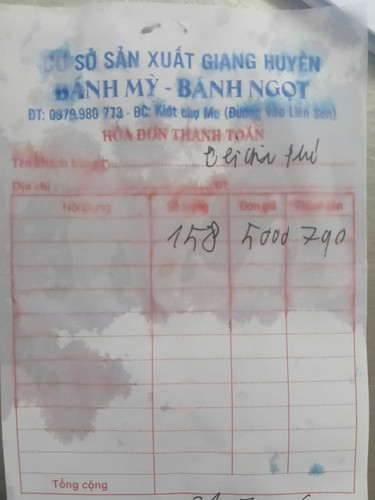 CƠ SỞ SẢN XUẤT GIANG HUYỀN
BÁNH MỲ - BÁNH NGỌT
ĐT: 0979.980 773 - ĐC: Kiốt chợ Me (Đường vào Liên Sơn)
HÓA ĐƠN THANH TOÁN
Tên khách hàng
Địa chỉ ĐT:
Nội Dung Số lượng Đơn giá Thành tiền
158 5000 790
Tổng cộng